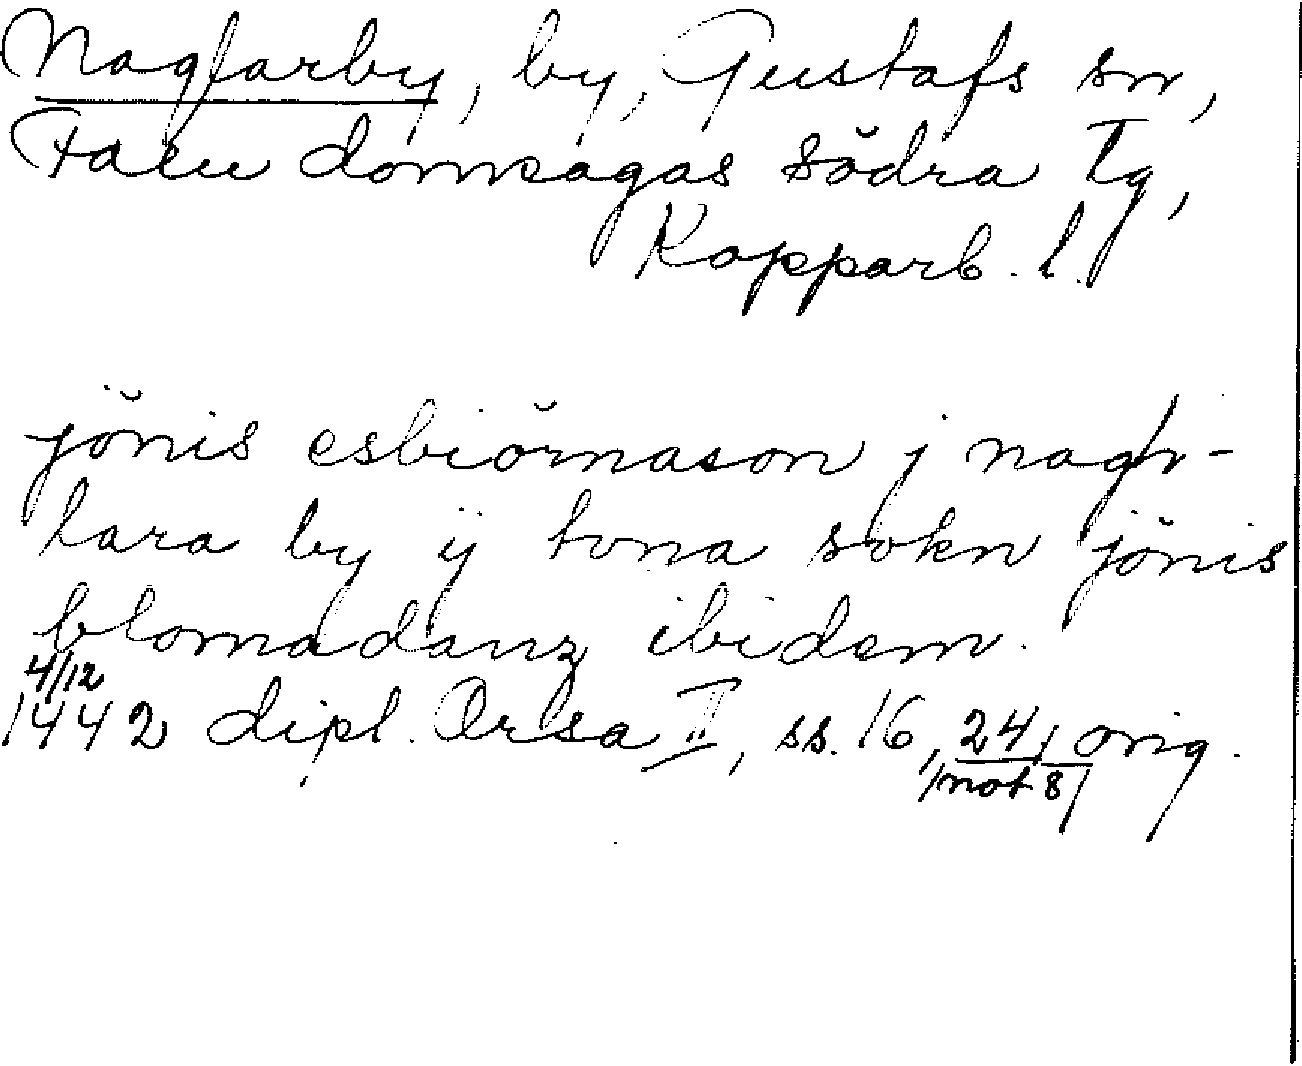 Naglarby, by, Gustafs sn,
Falu domsagas södra tg,
Kopparb. l.
jönis esbiörnason j nagl-
hara by ij tona sokn jönis
blomadanz ibidem.
4/12
1442 dipl. Orsa II, ss. 16, 24, orig.
not 8